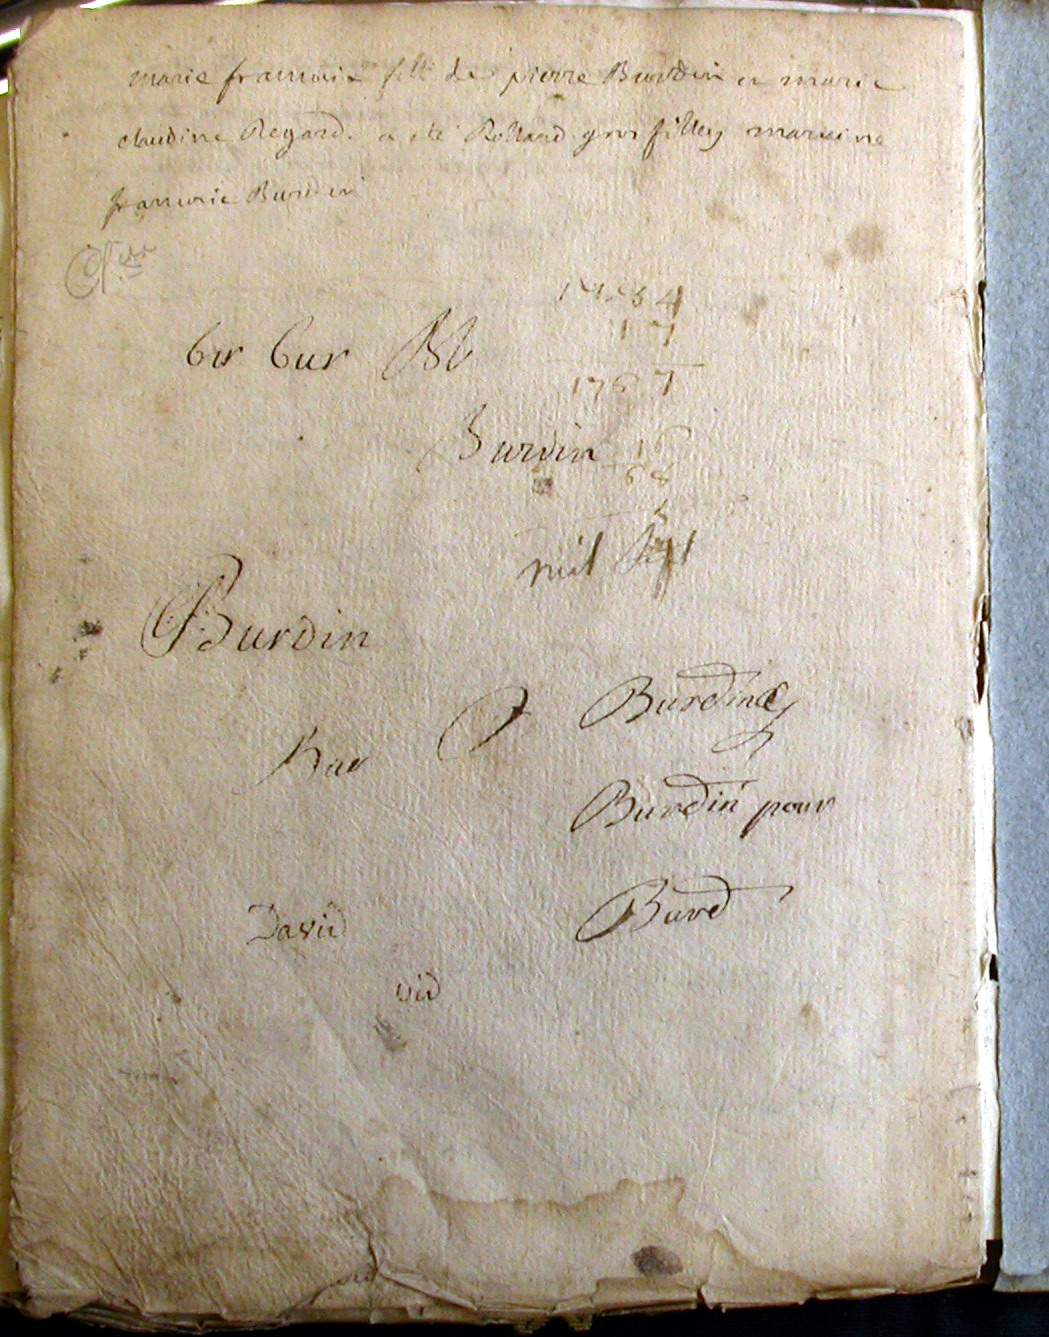 marie francoise fille de pierre Burdin et marie
claudine Regard. a été Rolland gros filley marreine
francoise Burdin
bur bur
17
1767
Burdin 16
68
mil sept
Burdin
Bur
Burdin
Burdin pour
Burd
David
vid